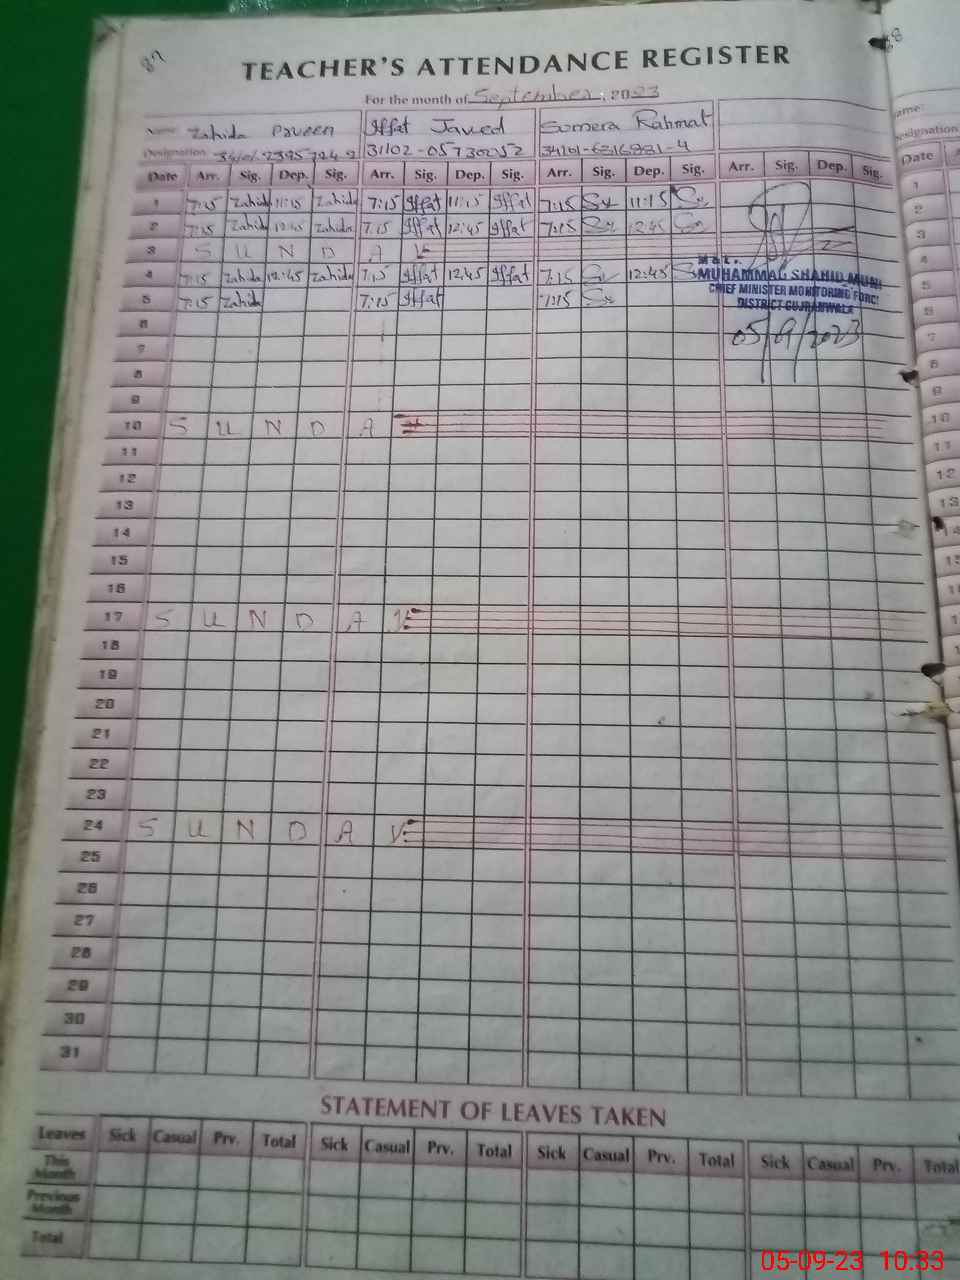 87
88
TEACHER'S ATTENDANCE REGISTER
For the month of September, 2023
Name: Zahida Parveen Iffat Javed Sumera Rahmat
Designation 31102-0573025-2 34101-6316881-4
Date Arr. Sig. Dep. Sig. Arr. Sig. Dep. Sig. Arr. Sig. Dep. Sig. Arr. Sig. Dep. Sig.
1 7:15 Zahida 11:15 Zahida 7:15 Iffat 11:15 Iffat 7:15 11:15
2 7:15 Zahida 12:45 Zahida 7:15 Iffat 12:45 Iffat 7:15 12:45
3 S U N D A Y
4 7:15 Zahida 12:45 Zahida 7:15 Iffat 12:45 Iffat 7:15 12:45
M & E
MUHAMMAD SHAHID MUNI
CHIEF MINISTER MONITORING FORC
DISTRICT GUJRANWALA
5 7:15 Zahida 7:15 Iffat 7:15
05/9/2023
6
7
8
9
10 S U N D A Y
11
12
13
14
15
16
17 S U N D A Y
18
19
20
21
22
23
24 S U N D A Y
25
26
27
28
29
30
31
STATEMENT OF LEAVES TAKEN
Leaves Sick Casual Prv. Total Sick Casual Prv. Total Sick Casual Prv. Total Sick Casual Prv. Total
This Month
Previous Month
Total
ame:
esignation
Date
1
2
3
4
5
6
7
8
9
10
11
12
13
14
05-09-23 10:33